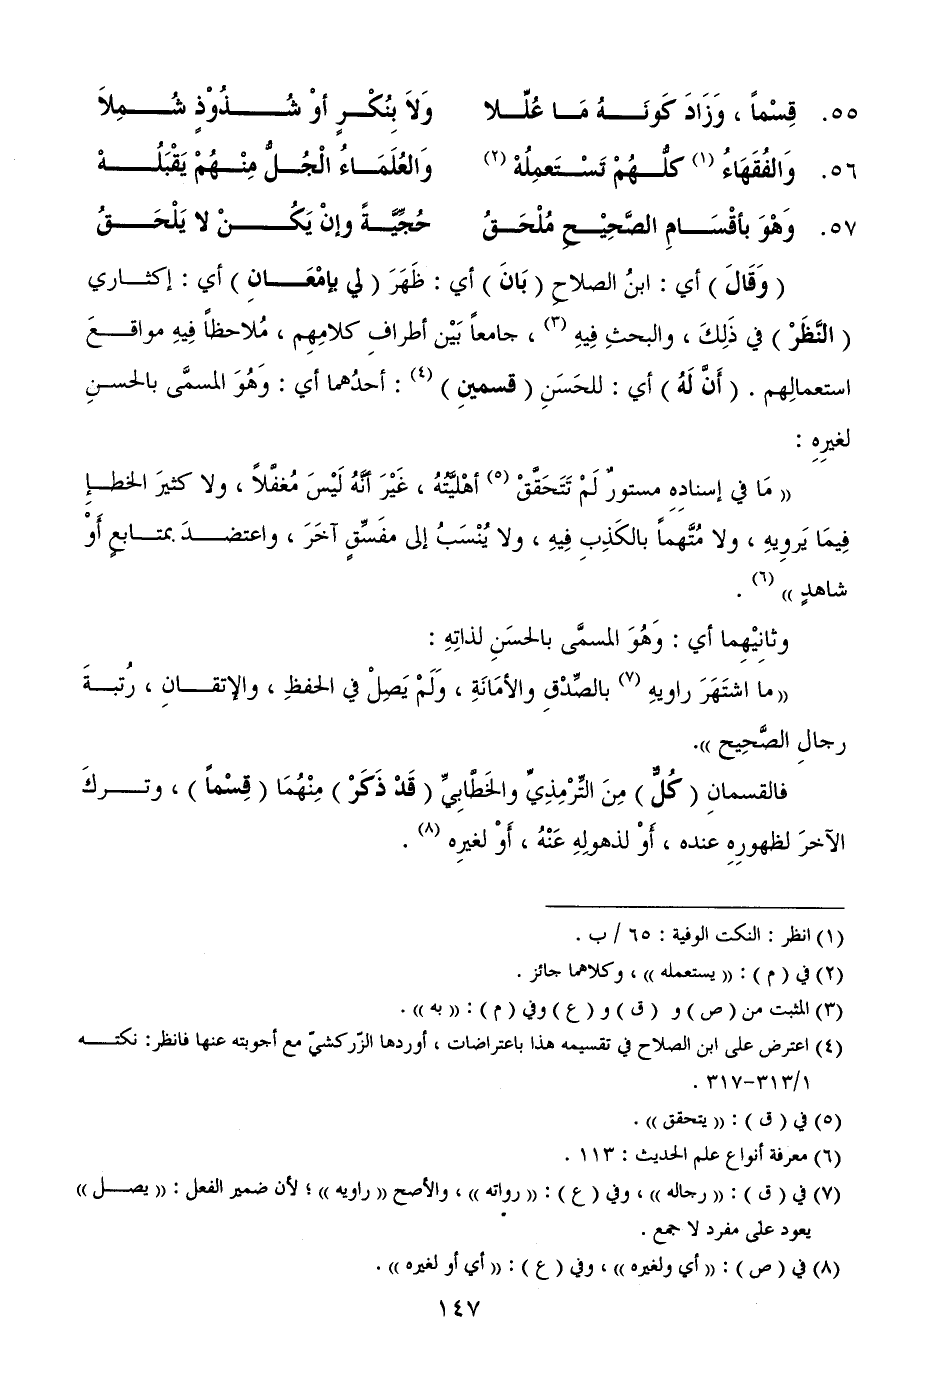 ٥٥. قِسْماً ، وَزَادَ كَونَهُ مَا عُلِّلا وَلاَ بِنُكْرٍ أوْ شُذُوْذٍ شُمِلاَ
٥٦. وَالفُقَهَاءُ (١) كلُّهُمْ تَسْتَعمِلُهْ (٢) وَالعُلَمَاءُ الْجُلُّ مِنْهُمْ يَقْبَلُهْ
٥٧. وَهْوَ بأقْسَامِ الصَّحِيْحِ مُلْحَقُ حُجِّيَّةً وإنْ يَكُنْ لا يَلْحَقُ
( وَقَالَ ) أي : ابنُ الصلاحِ ( بَانَ ) أي : ظَهَرَ ( لي بإمْعَانِ ) أي : إكثاري
( النَّظَرْ ) في ذَلِكَ ، والبحثِ فِيهِ (٣) ، جامعاً بَيْن أطرافِ كلامِهِم ، مُلاحظاً فِيهِ مواقعَ
استعمالِهم . ( أنَّ لَهُ ) أي : للحَسَنِ ( قسمينِ ) (٤) : أحدُهما أي : وَهُوَ المسمَّى بالحسنِ
لغيرِهِ :
« مَا في إسنادِهِ مستورٌ لَمْ تَتَحَقَّقْ (٥) أهْلِيَّتُهُ ، غَيْرَ أنَّهُ لَيْسَ مُغفَّلاً ، ولا كثيرَ الخطإِ
فِيمَا يَرويهِ ، ولا مُتَّهماً بالكَذِبِ فِيهِ ، ولا يُنْسَبُ إلى مفَسِّقٍ آخَرَ ، واعتضدَ بمتابعٍ أوْ
شاهدٍ » (٦) .
وثانِيْهِما أي : وَهُوَ المسمَّى بالحسَنِ لذاتِهِ :
« ما اشتَهَرَ راويهِ (٧) بالصِّدْقِ والأمَانَةِ ، وَلَمْ يَصِلْ في الحفظِ ، والإتقانِ ، رُتبةَ
رجالِ الصَّحِيح ».
فالقسمانِ ( كُلٌّ ) مِنَ التِّرْمِذِيِّ والخَطَّابِيِّ ( قَدْ ذَكَرْ ) مِنْهُمَا ( قِسْماً ) ، وتركَ
الآخرَ لظهورِهِ عنده ، أوْ لذهولِهِ عَنْهُ ، أوْ لغيرِه (٨) .
(١) انظر : النكت الوفية : ٦٥ / ب .
(٢) في ( م ) : « يستعمله » ، وكلاهما جائز .
(٣) المثبت من ( ص ) و ( ق ) و ( ع ) وفي ( م ) : « به » .
(٤) اعترض على ابن الصلاح في تقسيمه هذا باعتراضات ، أوردها الزّركشيّ مع أجوبته عنها فانظر: نكته
١/٣١٣-٣١٧ .
(٥) في ( ق ) : « يتحقق » .
(٦) معرفة أنواع علم الحديث : ١١٣ .
(٧) في ( ق ) : « رجاله » ، وفي ( ع ) : « رواته » ، والأصح « راويه » ؛ لأن ضمير الفعل : « يصل »
يعود على مفرد لا جمع .
(٨) في ( ص ) : « أي ولغيره » ، وفي ( ع ) : « أي أو لغيره » .
١٤٧